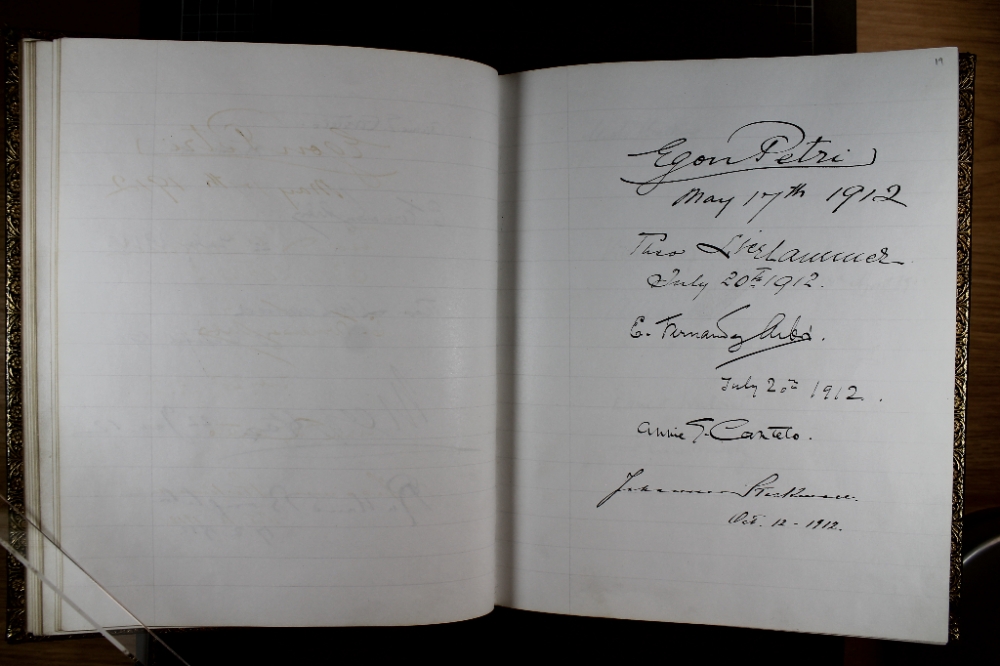 19
Egon Petri
May 17th 1912
Theo Lierhammer
July 20th 1912.
E. Fernandez Arbós.
July 20th 1912.
Annie E. Cantelo.
Johannes
Oct. 12 - 1912.